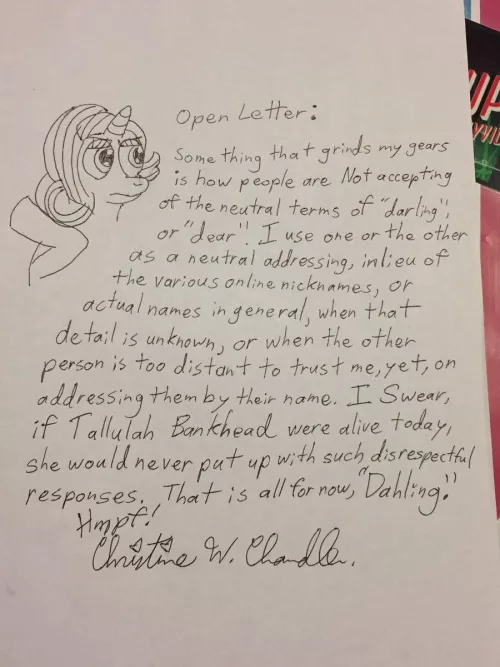 Open Letter:
Something that grinds my gears
is how people are Not accepting
of the neutral terms of "darling",
or "dear". I use one or the other
as a neutral addressing, inlieu of
the various online nicknames, or
actual names in general, when that
detail is unknown, or when the other
person is too distant to trust me, yet, on
addressing them by their name. I Swear,
if Tallulah Bankhead were alive today,
she would never put up with such disrespectful
responses. That is all for now, "Dahling."
Hmpf!
Christine W. Chandler.
UP